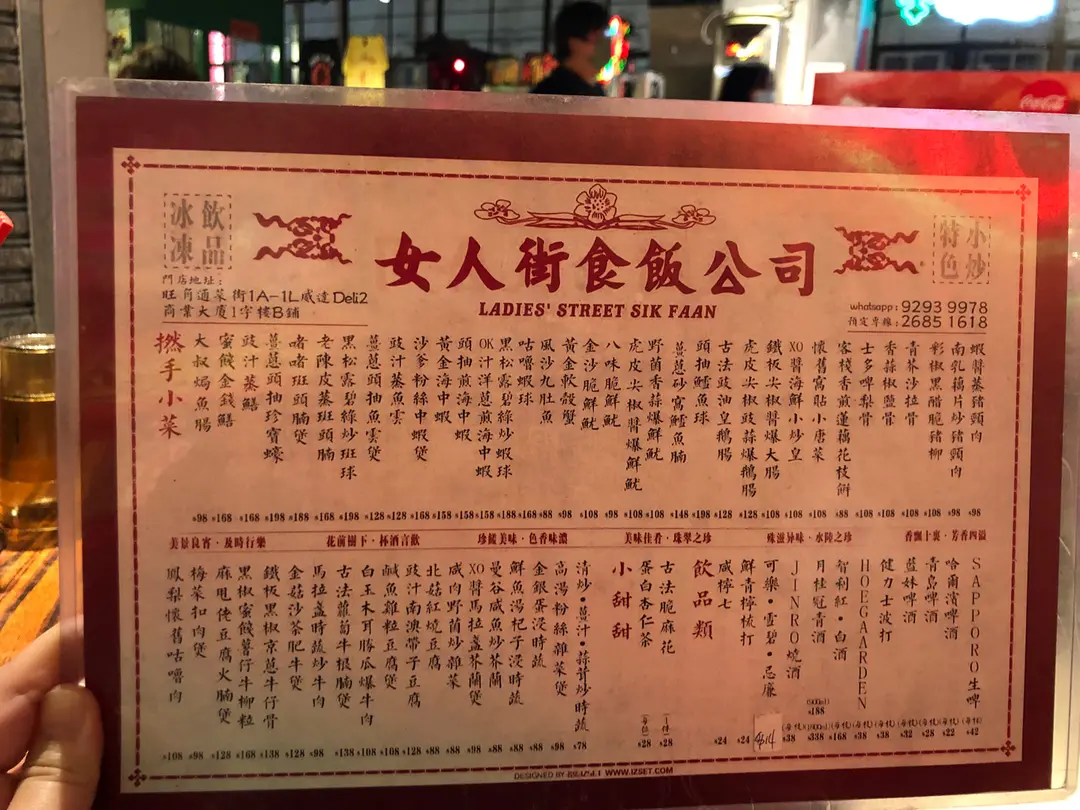 冰凍飲品
女人街食飯公司
LADIES' STREET SIK FAAN
特色小炒
門店地址：
旺角通菜街1A-1L威達Deli2
商業大廈1字樓B鋪
whatsapp : 9293 9978
預定專線 : 2685 1618
撚手小菜
大叔焗魚腸
蜜餞金錢鱔
豉汁蒸鱔
薑蔥頭抽珍寶蠔
啫啫斑頭腩煲
老陳皮蒸斑頭腩
黑松露碧綠炒斑球
薑蔥頭抽魚雲煲
豉汁蒸魚雲
沙爹粉絲中蝦煲
黃金海中蝦
頭抽煎海中蝦
OK汁洋蔥煎海中蝦
黑松露碧綠炒蝦球
咕嚕蝦球
風沙九肚魚
黃金軟殼蟹
金沙脆鮮魷
八味脆鮮魷
虎皮尖椒醬爆鮮魷
野菌香蒜爆鮮魷
薑蔥砂窩鱸魚腩
頭抽鱸魚球
古法豉油皇鵝腸
虎皮尖椒豉蒜爆鵝腸
鐵板尖椒醬爆大腸
XO醬海鮮小炒皇
懷舊窩貼小唐菜
客棧香煎蓮藕花枝餅
士多啤梨骨
香蒜椒鹽骨
青芥沙拉骨
彩椒黑醋脆豬柳
南乳藕片炒豬頸肉
蝦醬蒸豬頸肉
$98 $168 $168 $198 $188 $168 $198 $128 $128 $168 $158 $158 $158 $188 $168 $88 $98 $108 $98 $108 $108 $148 $198 $128 $128 $108 $108 $108 $88 $108 $108 $108 $98 $98
美景良宵·及時行樂 花前樹下·杯酒言歡 珍餚美味·色香味濃 美味佳肴·珠翠之珍 殊滋异味·水陸之珍 香飄十裏·芳香四溢
鳳梨懷舊咕嚕肉
梅菜扣肉煲
麻甩佬豆腐火腩煲
黑椒蜜餞薯仔牛柳粒
鐵板黑椒京蔥牛仔骨
金菇沙茶肥牛煲
馬拉盞時蔬炒牛肉
古法蘿蔔牛根腩煲
白玉木耳勝瓜爆牛肉
鹹魚雞粒豆腐煲
豉汁南澳帶子豆腐
北菇紅燒豆腐
咸肉野菌炒雜菜
XO醬馬拉盞芥蘭煲
曼谷咸魚炒芥蘭
鮮魚湯杞子浸時蔬
金銀蛋浸時蔬
高湯粉絲雜菜煲
清炒·薑汁·蒜蓉炒時蔬
$108 $98 $128 $168 $138 $128 $98 $138 $108 $108 $128 $88 $88 $98 $88 $88 $88 $98 $78
小甜甜
蛋白杏仁茶 (每位) $28
古法脆麻花 (一件) $28
飲品類
咸檸七 $24
鮮青檸梳打 $24
可樂·雪碧·忌廉 $14
JINRO燒酒 (每枝) $38
月桂冠青酒 (900ml) $188 $338
智利紅·白酒 $168
HOEGARDEN (每枝) $38
健力士波打 (每枝) $38
藍妹啤酒 (每枝) $32
青島啤酒 (每枝) $28
哈爾濱啤酒 (每枝) $22
SAPPORO生啤 (每杯) $42
DESIGNED BY WWW.IZSET.COM
Coca-Cola